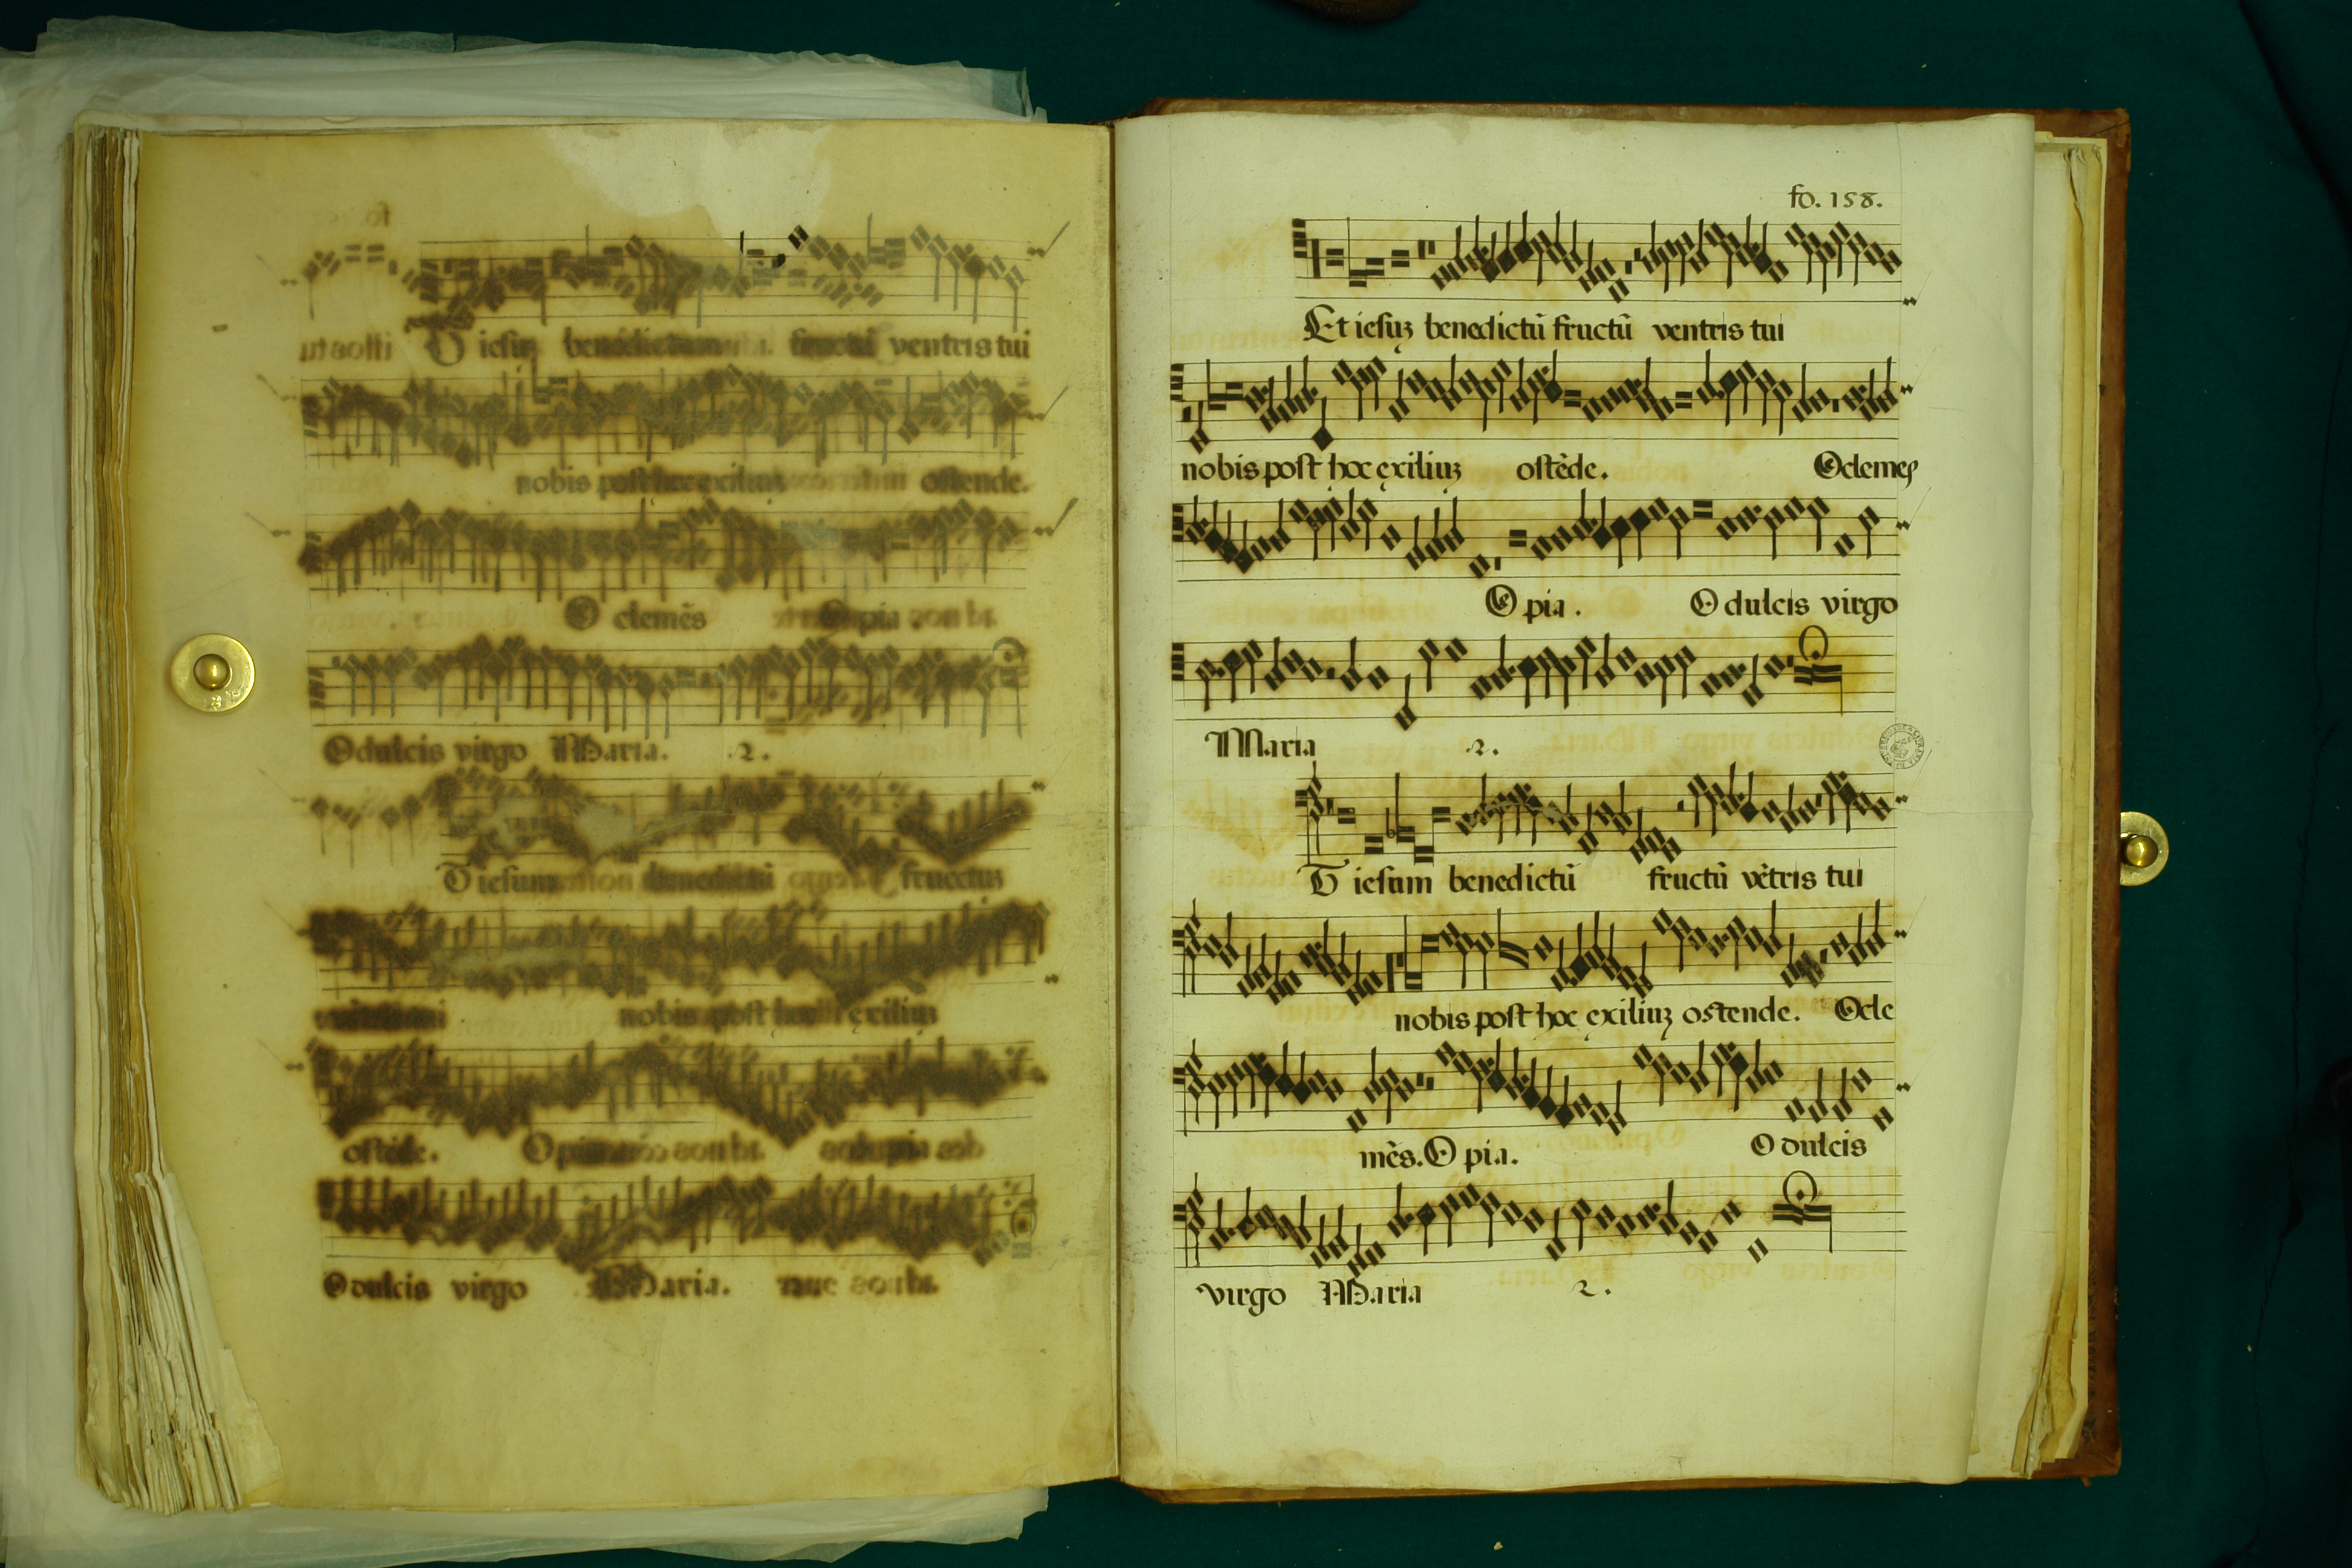 T iesuȝ benedictum fructū ventris tui
nobis post hoc exiliuȝ ostende.
O clemēs O pia
O dulcis virgo Maria. .2.
T iesum benedictū fructus
nobis post hoc exiliuȝ
ostēde. O pia
O dulcis virgo Maria.
fo. 158.
Et iesuȝ benedictū fructū ventris tui
nobis post hoc exiliuȝ ostēde. O clemes
O pia. O dulcis virgo
Maria .2.
T iesum benedictū fructū vētris tui
nobis post hoc exiliuȝ ostende. O cle
mēs. O pia. O dulcis
virgo Maria 2.